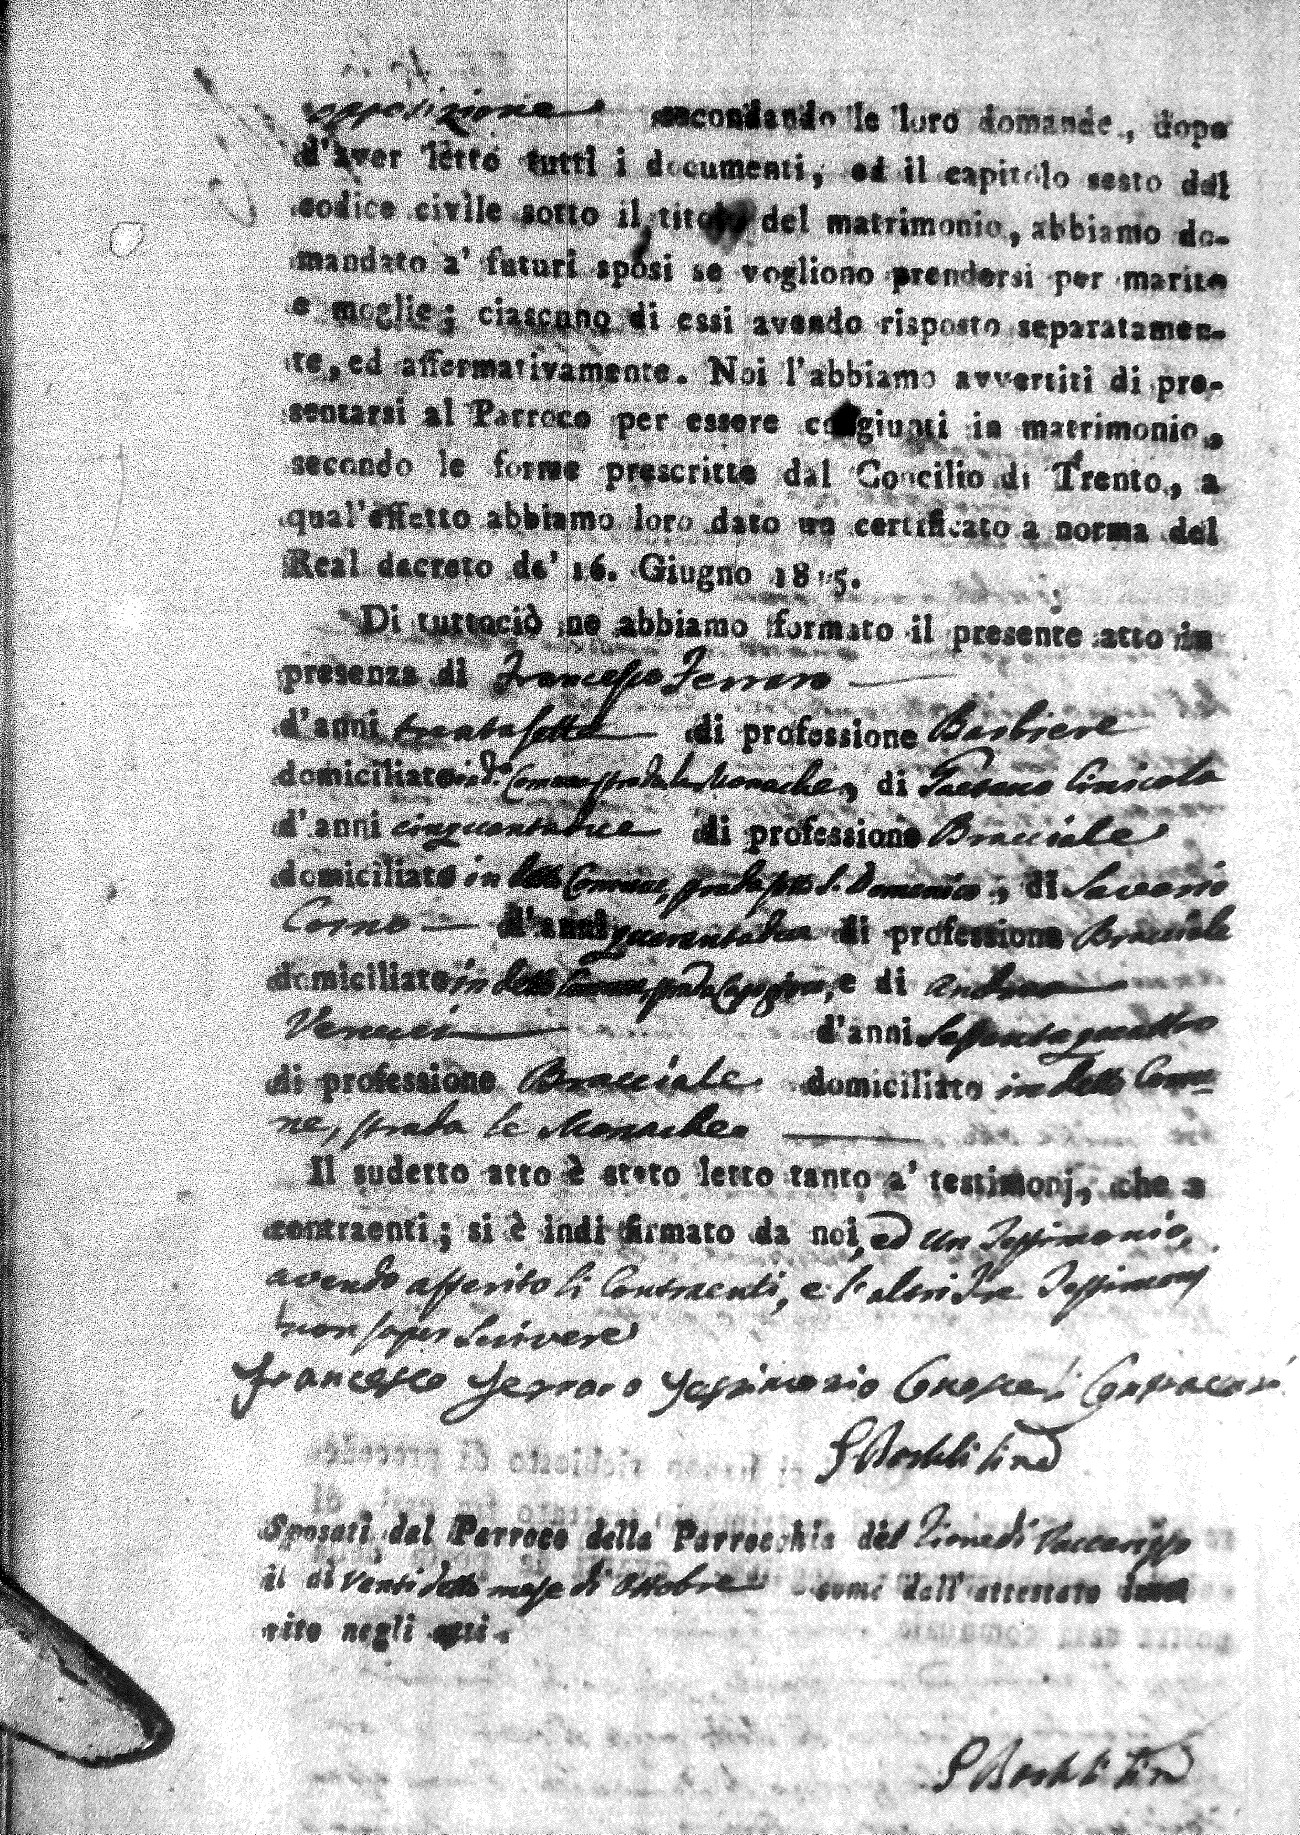 opposizione secondando le loro domande, dopo
d'aver letto tutti i documenti, ed il capitolo sesto del
codice civile sotto il titolo del matrimonio, abbiamo do-
mandato a' futuri sposi se vogliono prendersi per marito
e moglie; ciascuno di essi avendo risposto separatamen-
te, ed affermativamente. Noi l'abbiamo avvertiti di pre-
sentarsi al Parroco per essere congiunti in matrimonio,
secondo le forme prescritte dal Concilio di Trento, a
qual'effetto abbiamo loro dato un certificato a norma del
Real decreto de' 16. Giugno 1815.
Di tuttociò ne abbiamo formato il presente atto in
presenza di Francesco Ferraro
d'anni trentasette di professione Barbiere
domiciliato in d.o Comune strada le Monache, di Gaetano
d'anni di professione Bracciale
domiciliato in detto Comune, strada S. Domenico, di Saverio
Corno d'anni di professione Bracciale
domiciliato in detto Comune, strada e di Andrea
Venuci d'anni Sessantaquattro
di professione Bracciale domiciliato in detto Comu=
ne, strada le Monache
Il sudetto atto è stato letto tanto a' testimonj, che a
contraenti; si è indi firmato da noi, ed un Testimonio,
avendo asserito li Contraenti, e l'altri Tre Testimonj
non saper Scrivere
Francesco Ferraro Testimonio
Sposati dal Parroco della Parrocchia del
il di Venti detto mese di Ottobre come dall'attestato inse
rito negli atti.